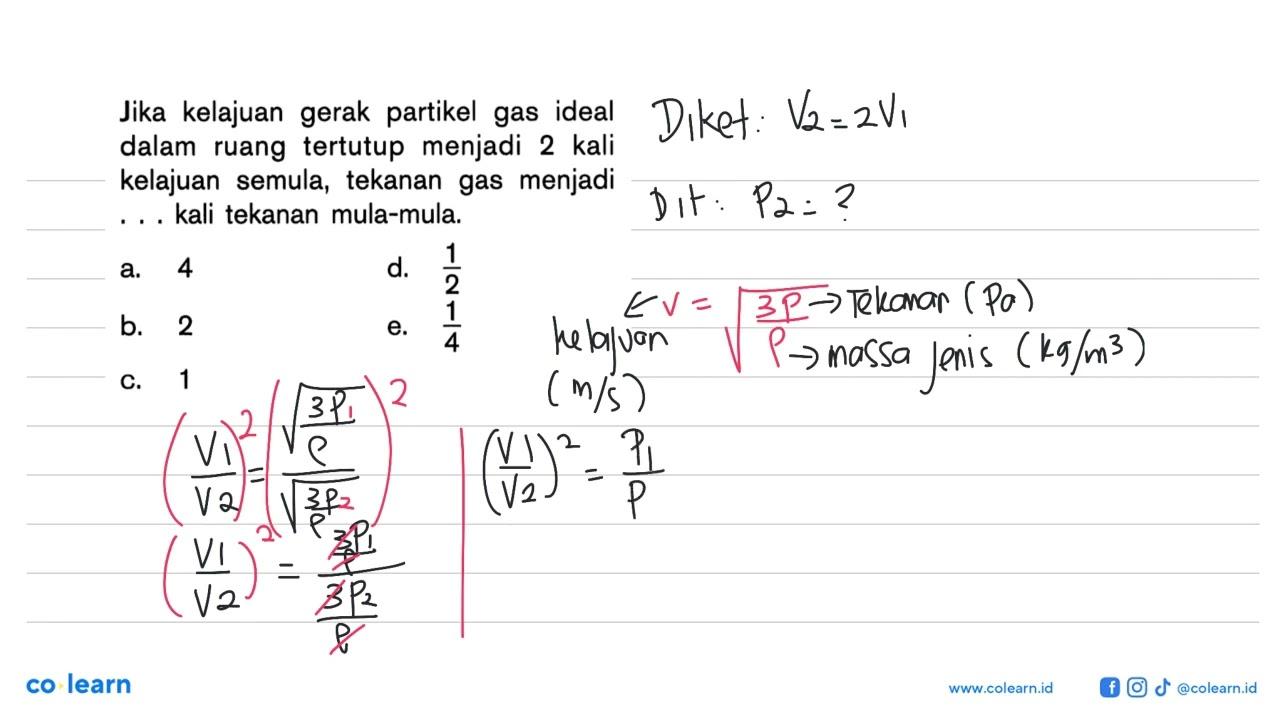 Jika kelajuan gerak partikel gas ideal
dalam ruang tertutup menjadi 2 kali
kelajuan semula, tekanan gas menjadi
. . . kali tekanan mula-mula.
a. 4
d. 1/2
b. 2
e. 1/4
c. 1
Diket: V2 = 2V1
Dit: P2 = ?
kelajuan (m/s) ← v = √(3P/ρ)
P → Tekanan (Pa)
ρ → massa jenis (kg/m³)
(V1/V2)² = (√(3P1/ρ) / √(3P2/ρ))²
(V1/V2)² = (3P1/ρ) / (3P2/ρ)
(V1/V2)² = P1/P
co learn
www.colearn.id
@colearn.id